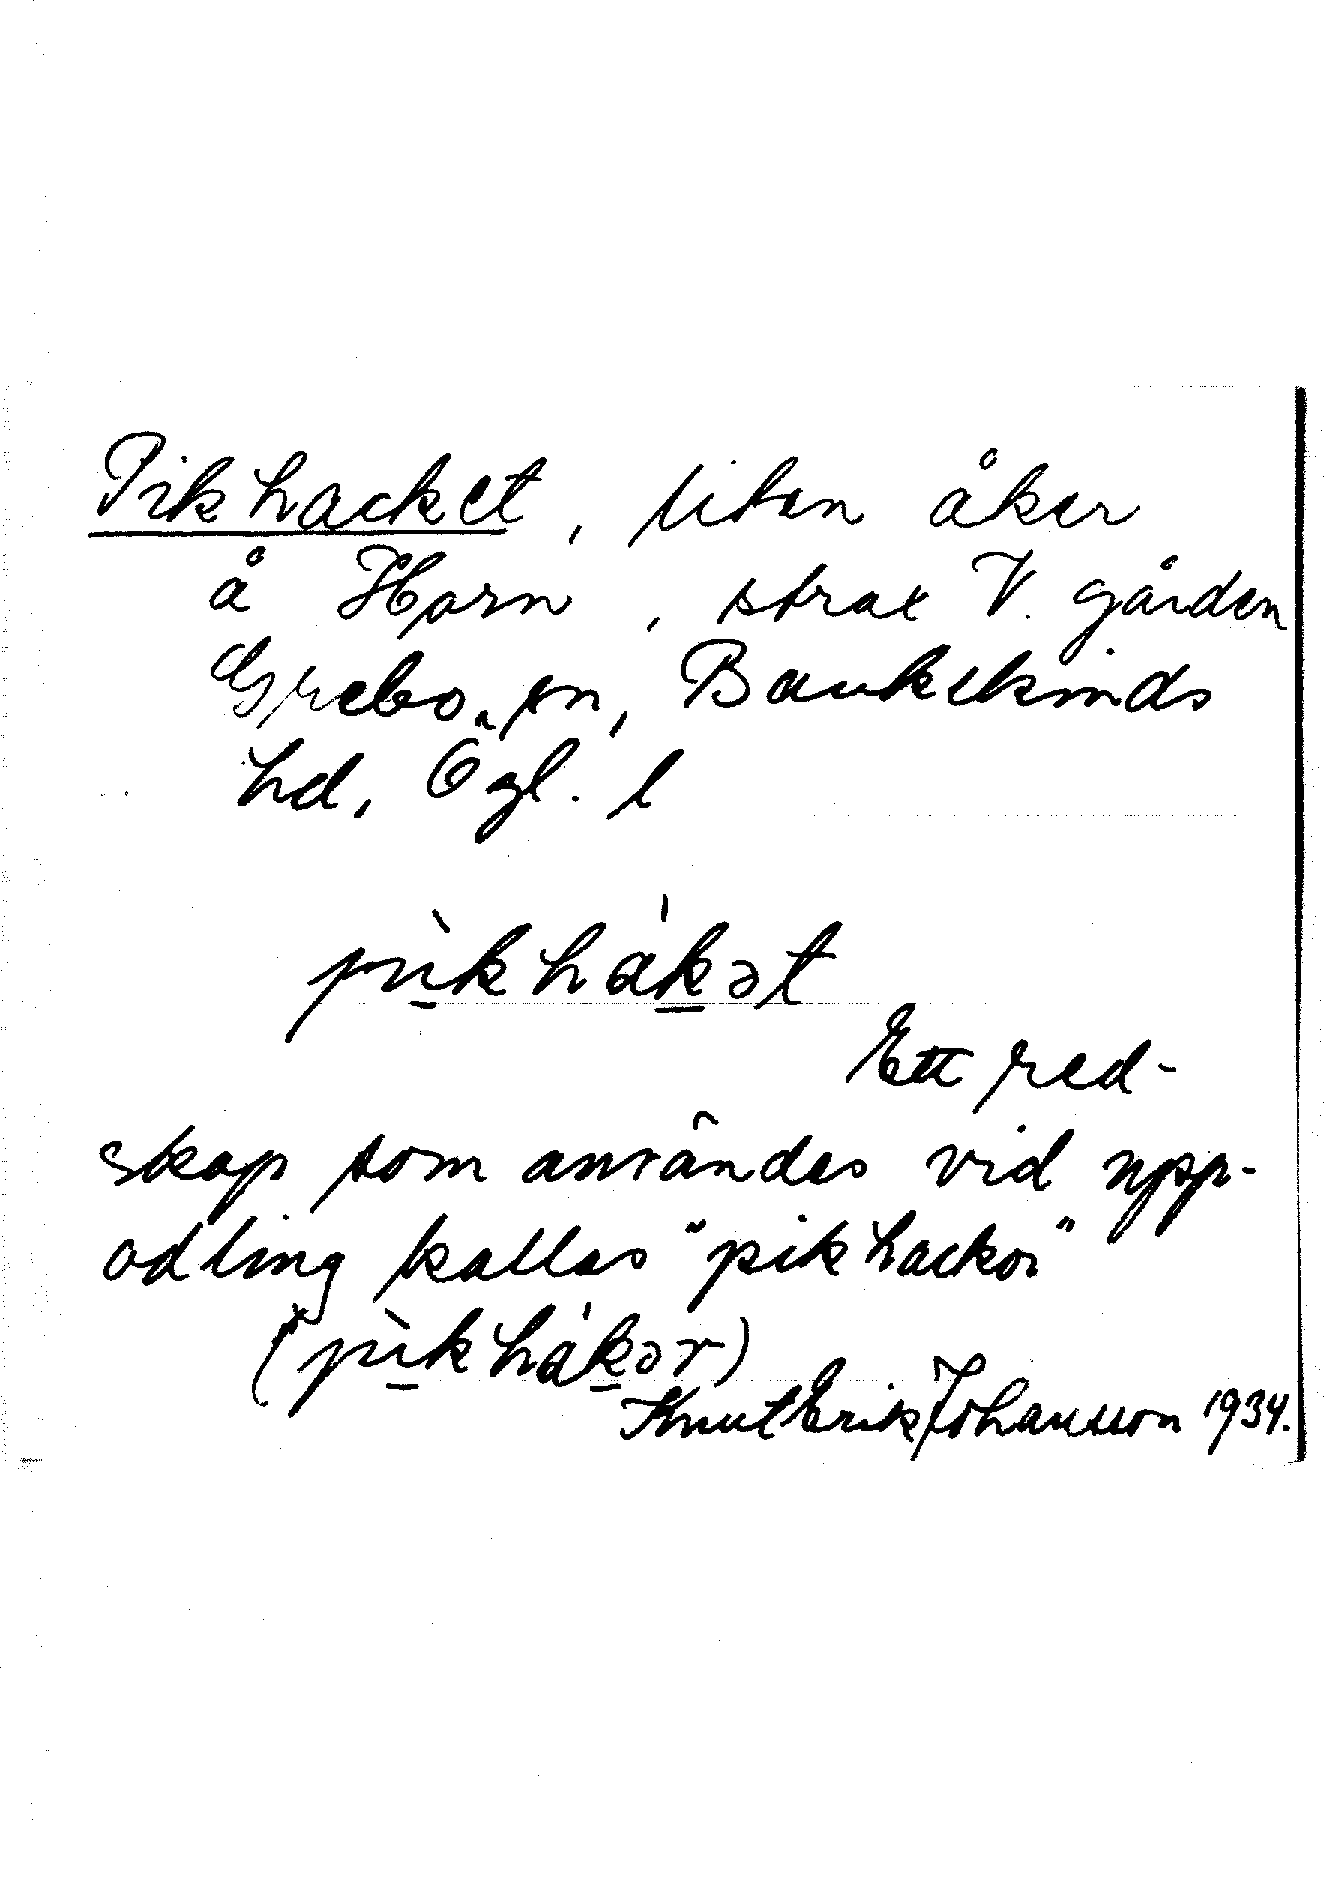 Pikhacket, liten åker
å Horn, strax V. gården
Grebo sn, Bankekinds
hd, Ögl. l
pìkhákət
Ett red-
skap som användes vid upp-
odling kallas "pikhackor"
(pìkhákər)
Knut Erik Johansson 1934.